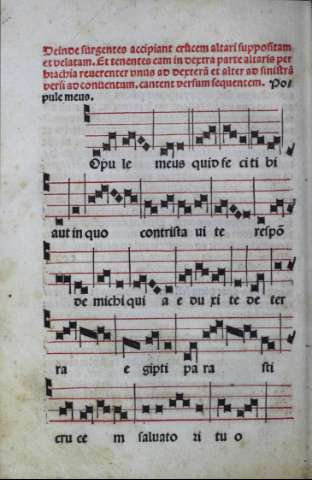 Deinde surgentes accipiant crucem altari suppositam
et velatam. Et tenentes eam in dextra parte altaris per
brachia reverenter vnus ad dexterā et alter ad sinistrā
versi ad conuentum. cantent versum sequentem. Po-
pule meus.
Opu le meus quid fe ci ti bi
aut in quo contrista ui te respō
de michi qui a e du xi te de ter
ra e gipti pa ra sti
cru ce m saluato ri tu o